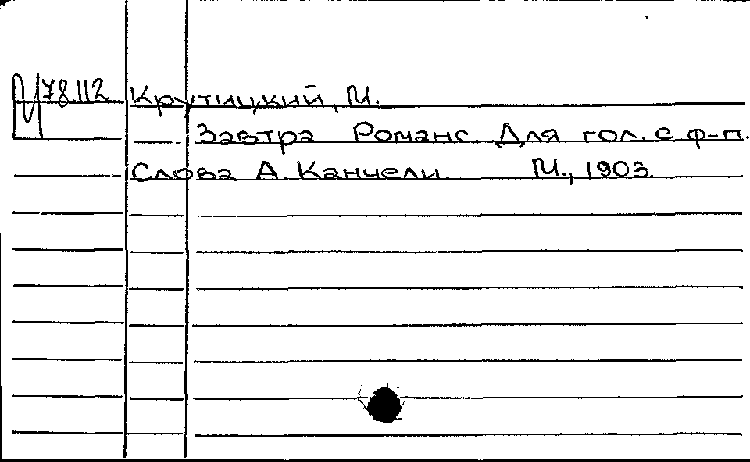 78112 Крутицкий, М.
Завтра Романс. Для гол. с ф-п.
Слова А. Канчели. М., 1903